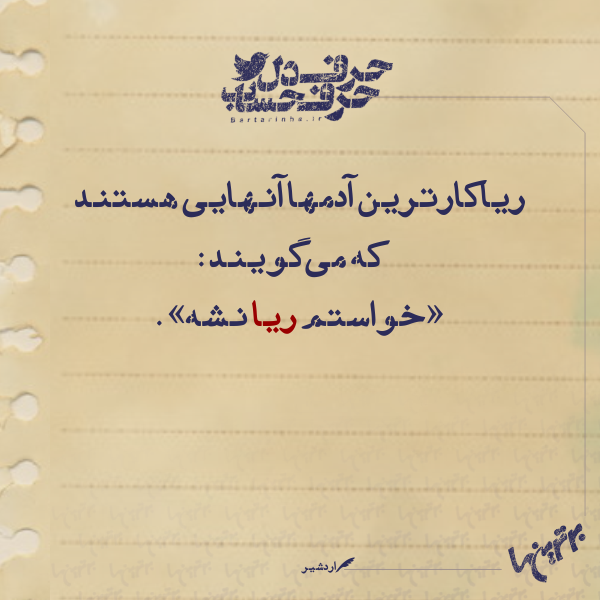 حرف دل
حرف حساب
Bartarinha.ir
ریاکارترین آدمها آنهایی هستند
که می‌گویند:
«خواستم ریا نشه».
اردشیر
برترین‌ها